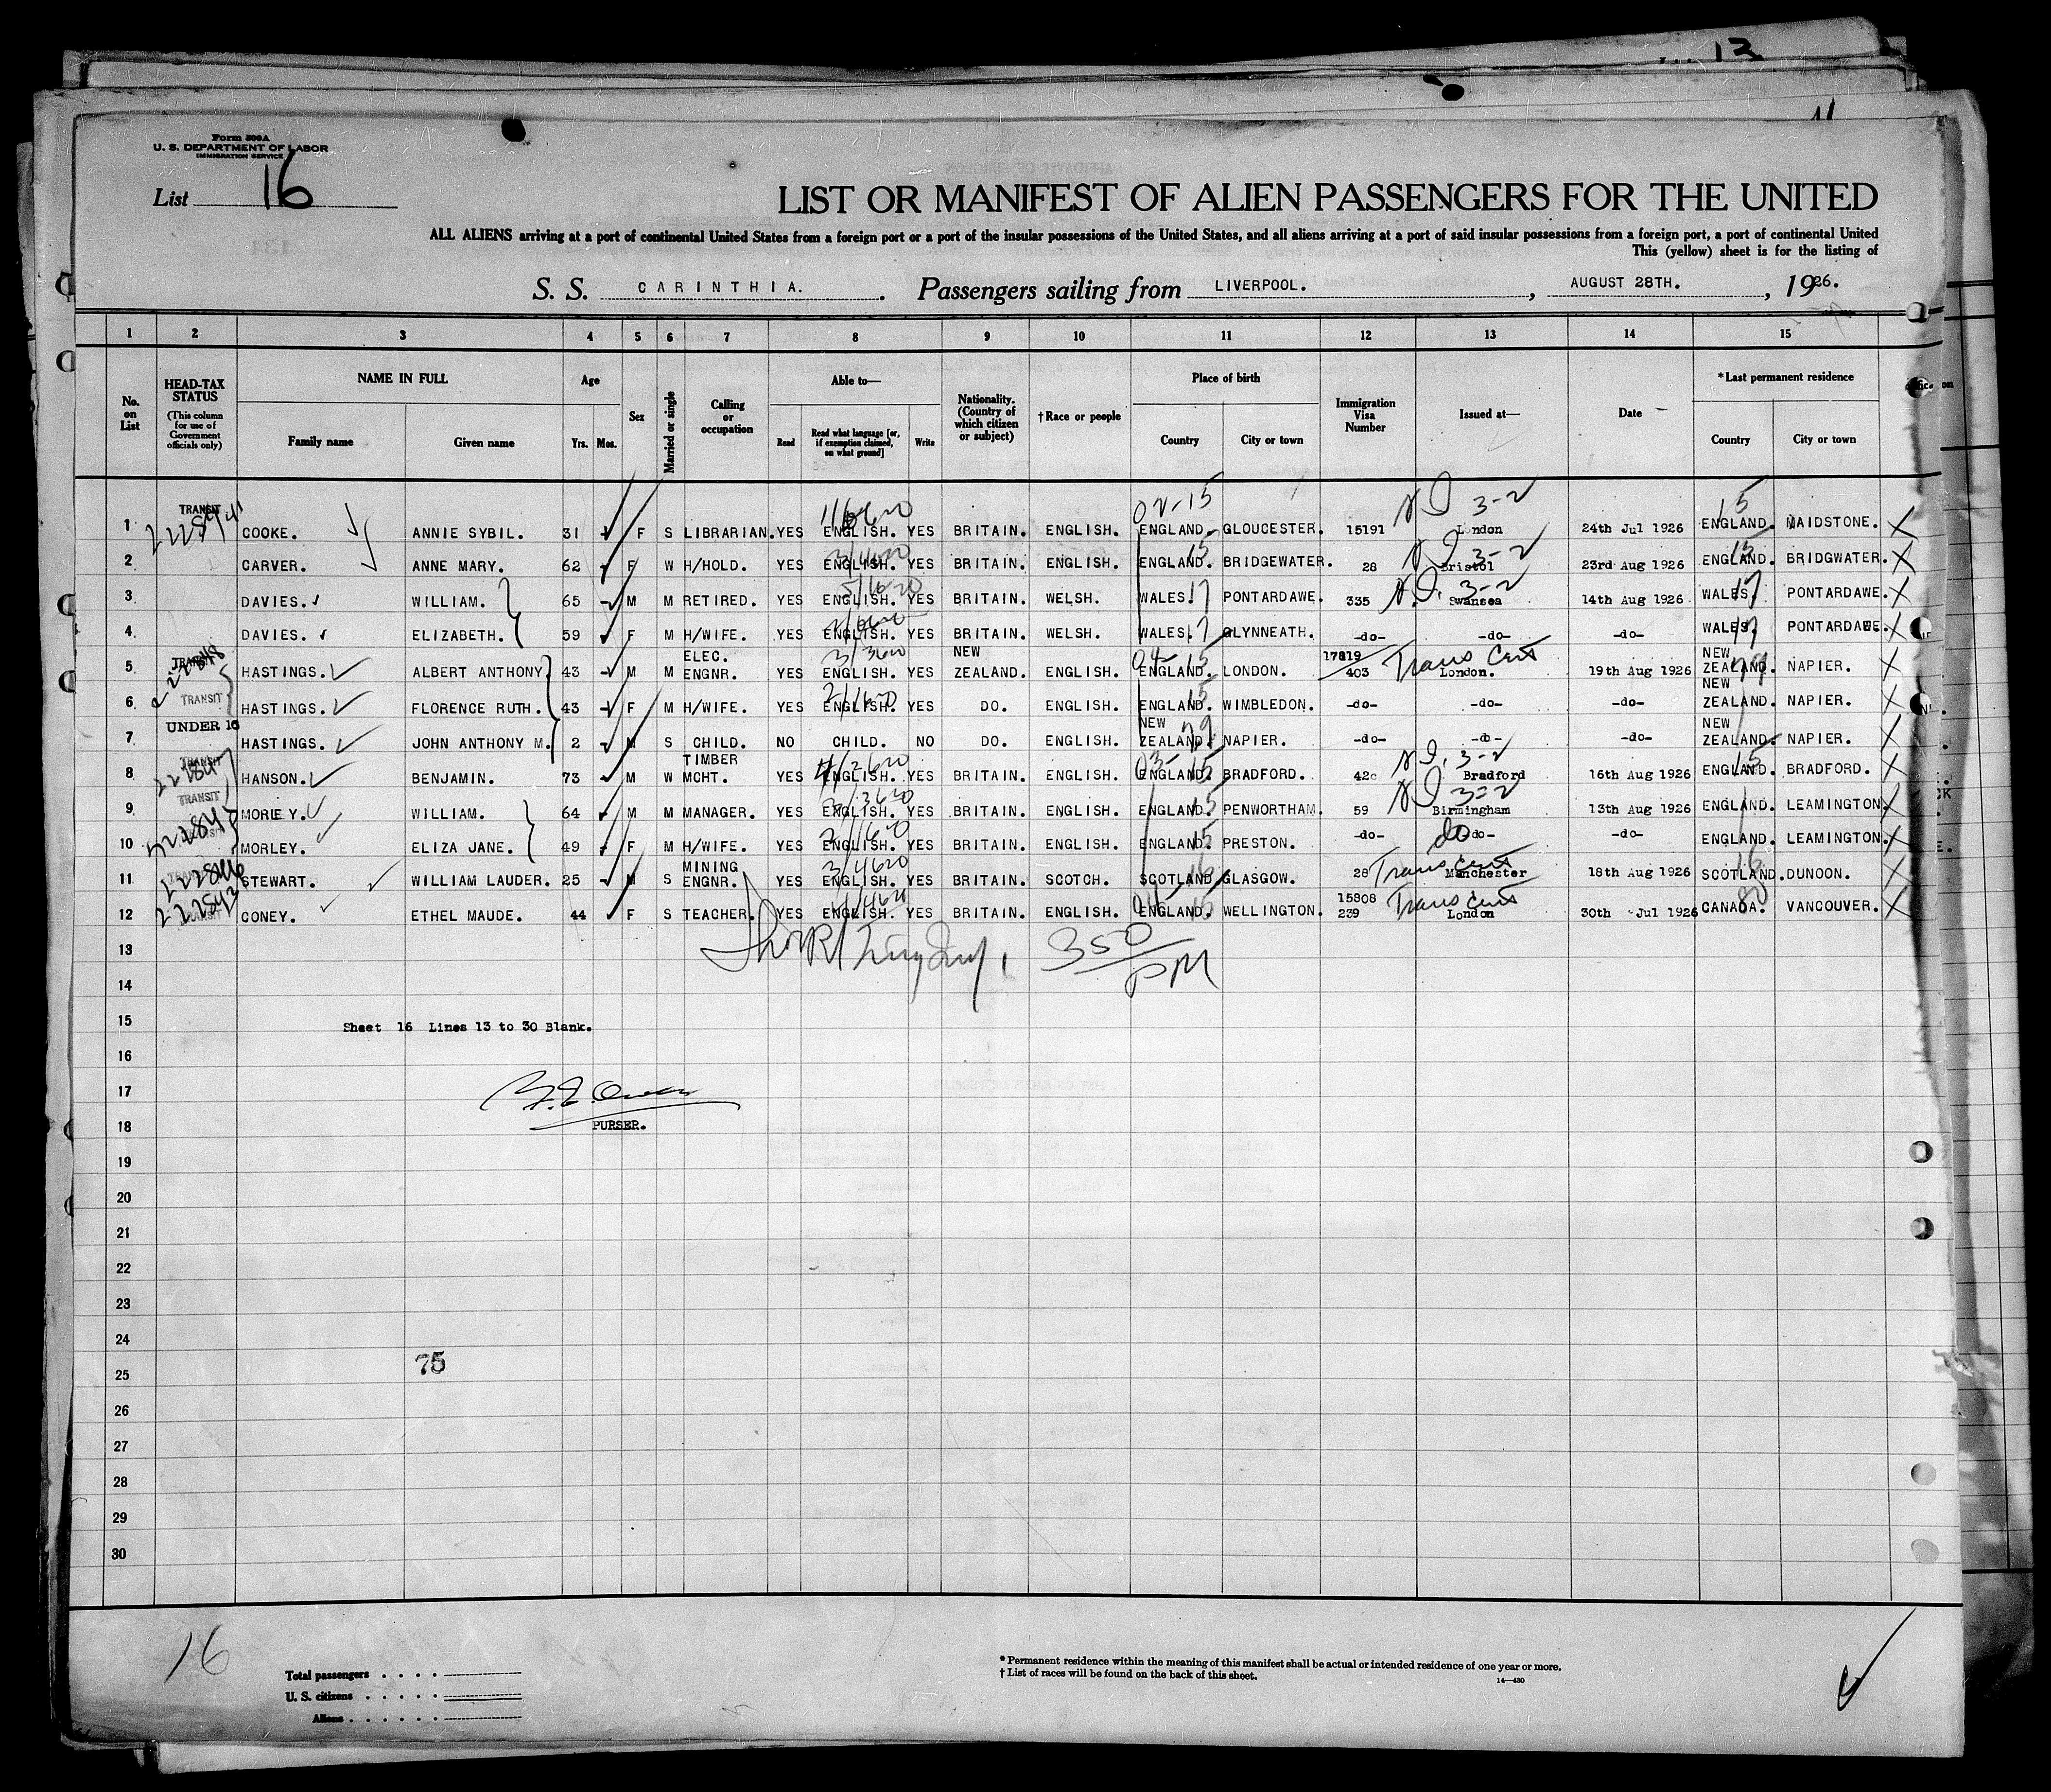 13
11
Form 500A
U. S. DEPARTMENT OF LABOR
IMMIGRATION SERVICE
List 16
LIST OR MANIFEST OF ALIEN PASSENGERS FOR THE UNITED
ALL ALIENS arriving at a port of continental United States from a foreign port or a port of the insular possessions of the United States, and all aliens arriving at a port of said insular possessions from a foreign port, a port of continental United
This (yellow) sheet is for the listing of
S. S. CARINTHIA. Passengers sailing from LIVERPOOL. , AUGUST 28TH. , 1926.
1 2 3 4 5 6 7 8 9 10 11 12 13 14 15
No. on List
HEAD-TAX STATUS (This column for use of Government officials only)
NAME IN FULL
Family name Given name
Age
Yrs. Mos.
Sex
Married or single
Calling or occupation
Able to—
Read Read what language [or, if exemption claimed, on what ground] Write
Nationality. (Country of which citizen or subject)
†Race or people
Place of birth
Country City or town
Immigration Visa Number
Issued at—
Date
*Last permanent residence
Country City or town
TRANSIT 02-15 N I 3-2 15
1 COOKE. ANNIE SYBIL. 31 F S LIBRARIAN. YES ENGLISH. YES BRITAIN. ENGLISH. ENGLAND. GLOUCESTER. 15191 London 24th Jul 1926 ENGLAND. MAIDSTONE.
15 N I 3-2 15
2 CARVER. ANNE MARY. 62 F W H/HOLD. YES ENGLISH. YES BRITAIN. ENGLISH. ENGLAND. BRIDGEWATER. 28 Bristol 23rd Aug 1926 ENGLAND. BRIDGWATER.
17 N I. 3-2 17
3 DAVIES. WILLIAM. 65 M M RETIRED. YES ENGLISH. YES BRITAIN. WELSH. WALES. PONTARDAWE. 335 Swansea 14th Aug 1926 WALES. PONTARDAWE.
17 17
4 DAVIES. ELIZABETH. 59 F M H/WIFE. YES ENGLISH. YES BRITAIN. WELSH. WALES. GLYNNEATH. -do- -do- -do- WALES. PONTARDAWE.
222848 TRANSIT 04-15 Trans Cert
5 HASTINGS. ALBERT ANTHONY 43 M M ELEC. ENGNR. YES ENGLISH. YES NEW ZEALAND. ENGLISH. ENGLAND. LONDON. 17819/403 London. 19th Aug 1926 NEW ZEALAND. NAPIER.
TRANSIT 15
6 HASTINGS. FLORENCE RUTH. 43 F M H/WIFE. YES ENGLISH. YES DO. ENGLISH. ENGLAND. WIMBLEDON. -do- -do- -do- NEW ZEALAND. NAPIER.
UNDER 16 79
7 HASTINGS. JOHN ANTHONY M. 2 M S CHILD. NO CHILD. NO DO. ENGLISH. NEW ZEALAND. NAPIER. -do- -do- -do- NEW ZEALAND. NAPIER.
TRANSIT 03-15 N I. 3-2 15
8 HANSON. BENJAMIN. 73 M W TIMBER MCHT. YES ENGLISH. YES BRITAIN. ENGLISH. ENGLAND. BRADFORD. 42 Bradford 16th Aug 1926 ENGLAND. BRADFORD.
TRANSIT 15 N I 3-2
9 MORLEY. WILLIAM. 64 M M MANAGER. YES ENGLISH. YES BRITAIN. ENGLISH. ENGLAND. PENWORTHAM. 59 Birmingham 13th Aug 1926 ENGLAND. LEAMINGTON.
TRANSIT 15 do
10 MORLEY. ELIZA JANE. 49 F M H/WIFE. YES ENGLISH. YES BRITAIN. ENGLISH. ENGLAND. PRESTON. -do- -do- -do- ENGLAND. LEAMINGTON.
222846 16 Trans Cert 16
11 STEWART. WILLIAM LAUDER. 25 M S MINING ENGNR. YES ENGLISH. YES BRITAIN. SCOTCH. SCOTLAND GLASGOW. 28 Manchester 18th Aug 1926 SCOTLAND. DUNOON.
222843 TRANSIT 15 Trans Cert 80
12 CONEY. ETHEL MAUDE. 44 F S TEACHER. YES ENGLISH. YES BRITAIN. ENGLISH. ENGLAND. WELLINGTON. 15808 239 London 30th Jul 1926 CANADA. VANCOUVER.
350 PM
13
14
15 Sheet 16 Lines 13 to 30 Blank.
16
17
18 PURSER.
19
20
21
22
23
24
75
25
26
27
28
29
30
16
Total passengers
U. S. citizens
Aliens
* Permanent residence within the meaning of this manifest shall be actual or intended residence of one year or more.
† List of races will be found on the back of this sheet.
14—430